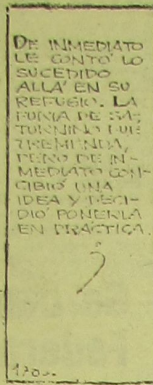 DE INMEDIATO
LE CONTÓ LO
SUCEDIDO
ALLÁ EN SU
REFUGIO. LA
FURIA DE SA-
TURNINO FUE
TREMENDA,
PERO DE IN-
MEDIATO CON-
CIBIÓ UNA
IDEA Y DECI-
DIÓ PONERLA
EN PRÁCTICA.